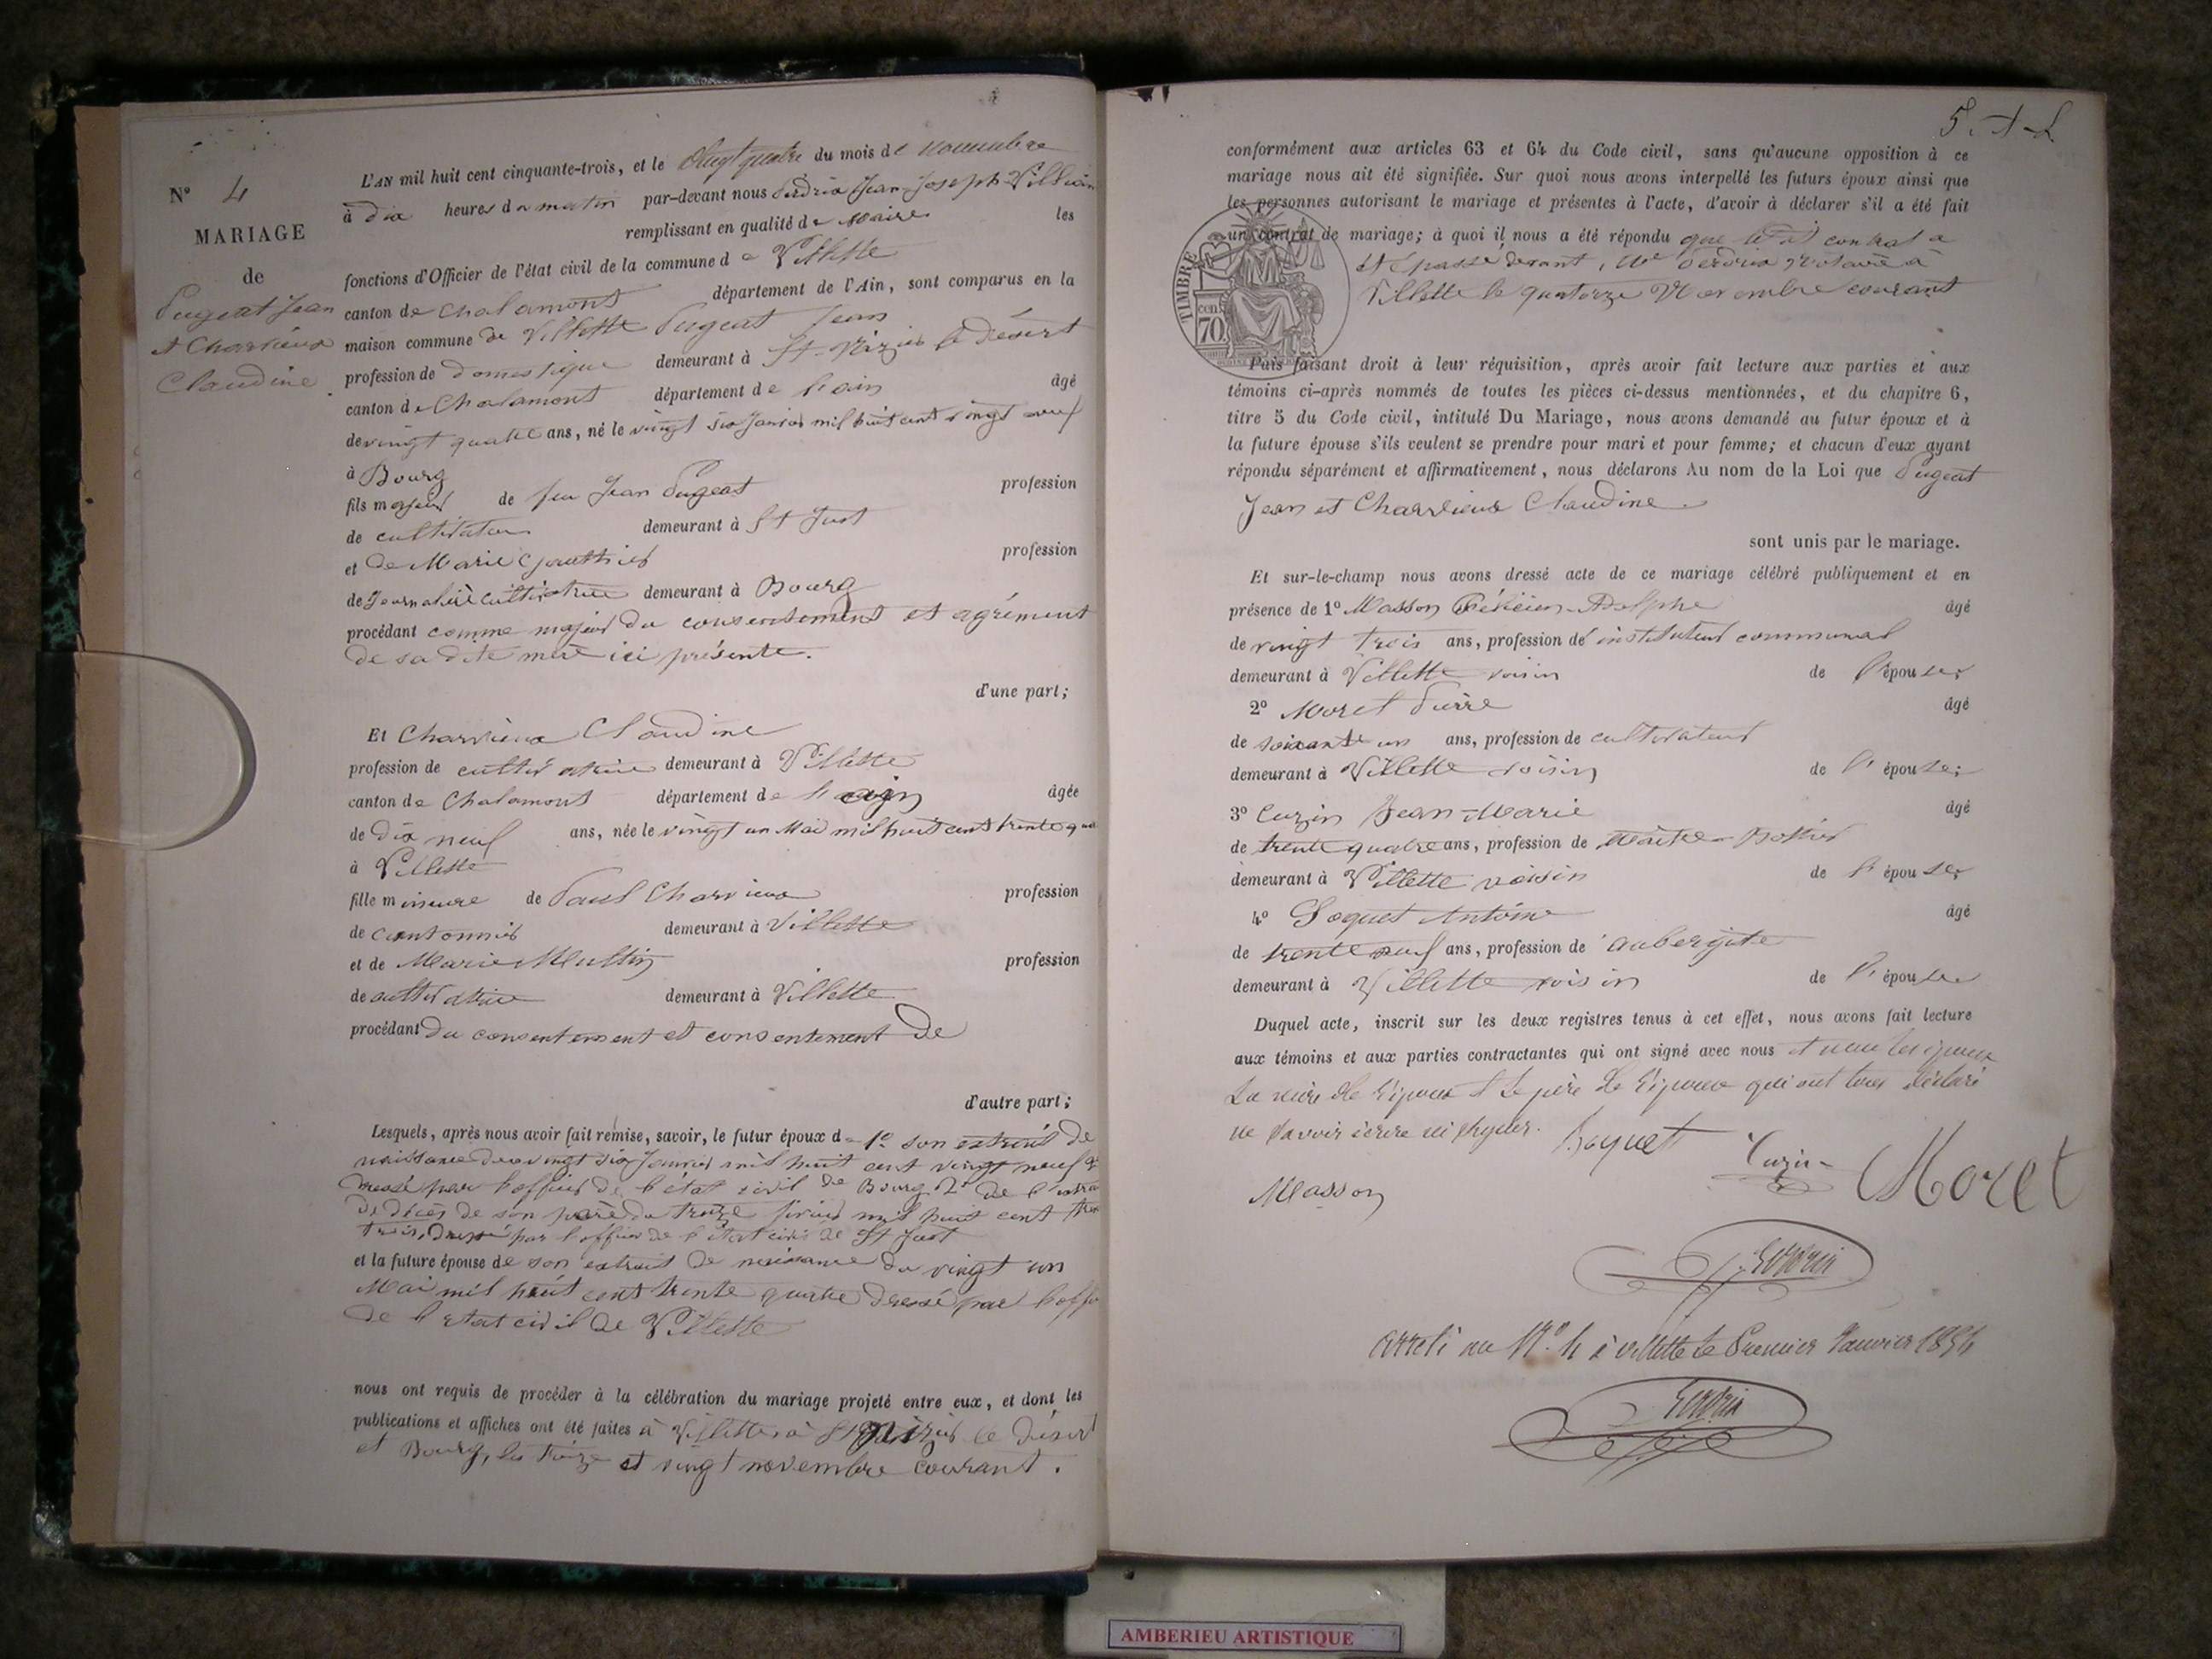 N° 4
MARIAGE
de
Pugeat Jean
et Charvieux
Claudine
L'AN mil huit cent cinquante-trois, et le vingt quatre du mois de novembre
à dix heures du matin par-devant nous Perdrix Jean-Joseph
remplissant en qualité de Maire les
fonctions d'Officier de l'état civil de la commune de Villette
canton de Chalamont département de l'Ain, sont comparus en la
maison commune de Villette Pugeat Jean
profession de domestique demeurant à St-Nizier le Désert
canton de Chalamont département de l'ain âgé
de vingt quatre ans, né le vingt six janvier mil huit cent vingt neuf
à Bourg
fils majeur de feu Jean Pugeat profession
de cultivateur demeurant à St Just
et de Marie Gauthier profession
de Journalière cultivatrice demeurant à Bourg
procédant comme majeur du consentement et agrément
de sa dite mère ici présente.
d'une part;
Et Charvieux Claudine
profession de cultivatrice demeurant à Villette
canton de Chalamont département de l'ain âgée
de dix neuf ans, née le vingt un Mai mil huit cent trente qua
à Villette
fille mineure de Paul Charvieux profession
de cantonnier demeurant à Villette
et de Marie profession
de cultivatrice demeurant à Villette
procédant du consentement et consentement de
d'autre part;
Lesquels, après nous avoir fait remise, savoir, le futur époux de 1° son extrait de
naissance du vingt six Janvier mil huit cent vingt neuf
dressé par l'officier de l'état civil de Bourg 2° de l'extra
de décès de son père du treize février mil huit cent tren
trois, dressé par l'officier de l'état civil de St Just
et la future épouse de son extrait de naissance du vingt un
Mai mil huit cent trente quatre dressé par l'offi
de l'état civil de Villette
nous ont requis de procéder à la célébration du mariage projeté entre eux, et dont les
publications et affiches ont été faites à Villette à St Nizier le Désert
et Bourg, les treize et vingt novembre courant.
conformément aux articles 63 et 64 du Code civil, sans qu'aucune opposition à ce
mariage nous ait été signifiée. Sur quoi nous avons interpellé les futurs époux ainsi que
les personnes autorisant le mariage et présentes à l'acte, d'avoir à déclarer s'il a été fait
un contrat de mariage; à quoi il nous a été répondu que le dit contrat a
été passé devant, Me Perdrix Notaire à
Villette le quatorze Novembre courant
TIMBRE
cent.
70
Puis faisant droit à leur réquisition, après avoir fait lecture aux parties et aux
témoins ci-après nommés de toutes les pièces ci-dessus mentionnées, et du chapitre 6,
titre 5 du Code civil, intitulé Du Mariage, nous avons demandé au futur époux et à
la future épouse s'ils veulent se prendre pour mari et pour femme; et chacun d'eux ayant
répondu séparément et affirmativement, nous déclarons Au nom de la Loi que Pugeat
Jean et Charvieux Claudine
sont unis par le mariage.
Et sur-le-champ nous avons dressé acte de ce mariage célébré publiquement et en
présence de 1° Masson Félicien-Adolphe âgé
de vingt trois ans, profession de instituteur communal
demeurant à Villette voisin de l'épouse;
2° Moret Pierre âgé
de soixante un ans, profession de cultivateur
demeurant à Villette voisin de l'épouse;
3° Cuzin Jean-Marie âgé
de trente quatre ans, profession de Maître-Bottier
demeurant à Villette voisin de l'épouse;
4° Boquet Antoine âgé
de trente neuf ans, profession de aubergiste
demeurant à Villette voisin de l'épouse
Duquel acte, inscrit sur les deux registres tenus à cet effet, nous avons fait lecture
aux témoins et aux parties contractantes qui ont signé avec nous et non les époux
la mère de l'époux et le père de l'épouse qui ont tous déclaré
ne savoir écrire ni signer.
Boquet Cuzin Moret
Masson
Perdrix
Arrêté au N° 4 à Villette le Premier Janvier 1854
Perdrix
AMBERIEU ARTISTIQUE